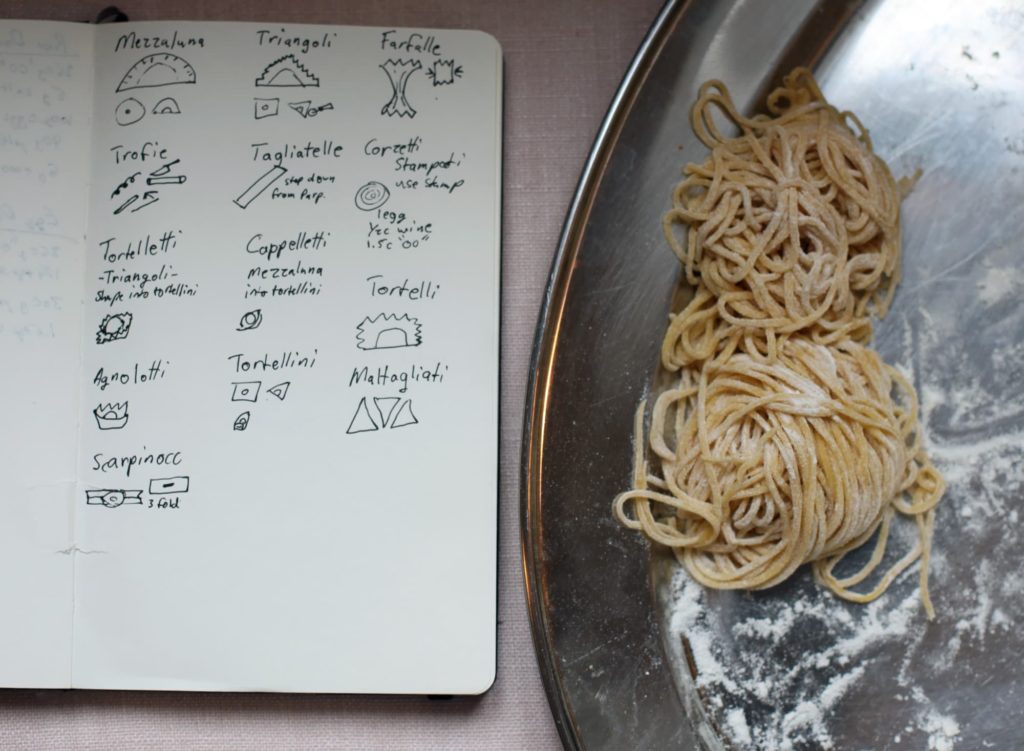 Mezzaluna
Triangoli
Farfalle
Trofie
Tagliatelle
step down
from Parp.
Corzetti
Stampati
use stamp
1egg
1/2c wine
1.5c "00"
Tortelletti
-Triangoli-
Shape into tortellini
Cappelletti
Mezzaluna
into tortellini
Tortelli
Agnolotti
Tortellini
Maltagliati
Scarpinocc
3 fold